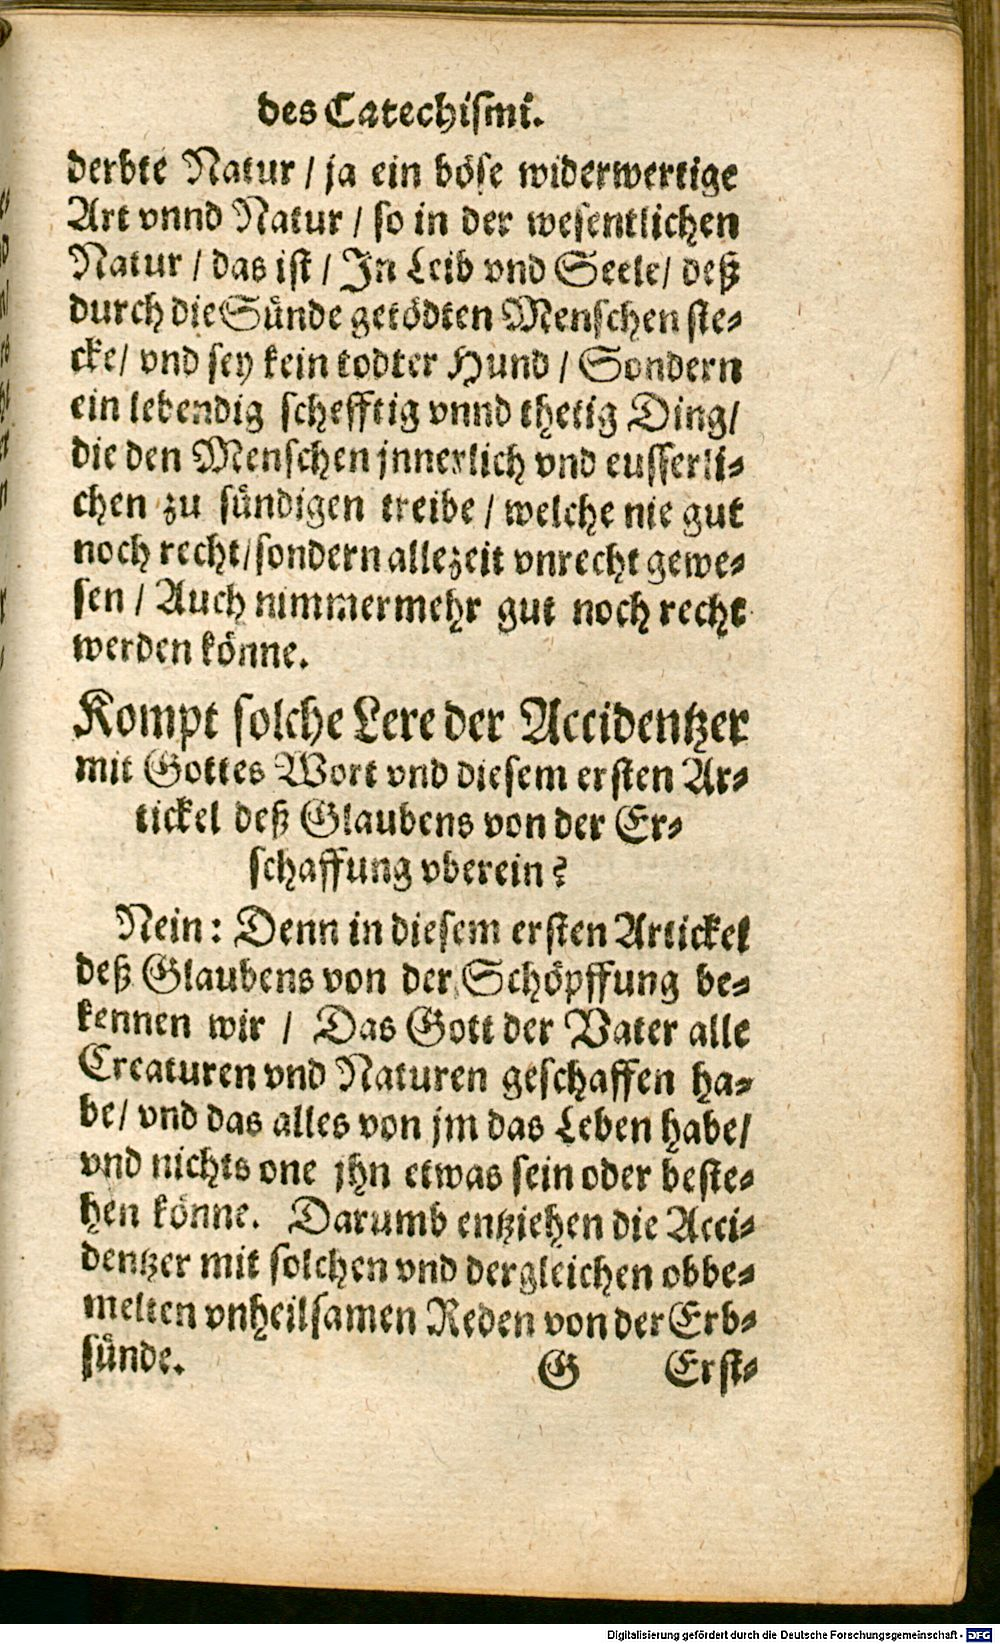 des Catechismi.
derbte Natur / ja ein böse widerwertige
Art vnnd Natur / so in der wesentlichen
Natur / das ist / In Leib vnd Seele/ deß
durch die Sünde getödten Menschen ste-
cke/ vnd sey kein todter Hund / Sondern
ein lebendig schefftig vnnd thetig Ding/
die den Menschen jnnerlich vnd eusserli-
chen zu sündigen treibe / welche nie gut
noch recht/ sondern allezeit vnrecht gewe-
sen / Auch nimmermehr gut noch recht
werden könne.
Kompt solche Lere der Accidentzer
mit Gottes Wort vnd diesem ersten Ar-
tickel deß Glaubens von der Er-
schaffung vberein?
Nein: Denn in diesem ersten Artickel
deß Glaubens von der Schöpffung be-
kennen wir / Das Gott der Vater alle
Creaturen vnd Naturen geschaffen ha-
be/ vnd das alles von jm das Leben habe/
vnd nichts one jhn etwas sein oder beste-
hen könne. Darumb entziehen die Acci-
dentzer mit solchen vnd dergleichen obbe-
melten vnheilsamen Reden von der Erb-
sünde.
G Erst-
Digitalisierung gefördert durch die Deutsche Forschungsgemeinschaft - DFG